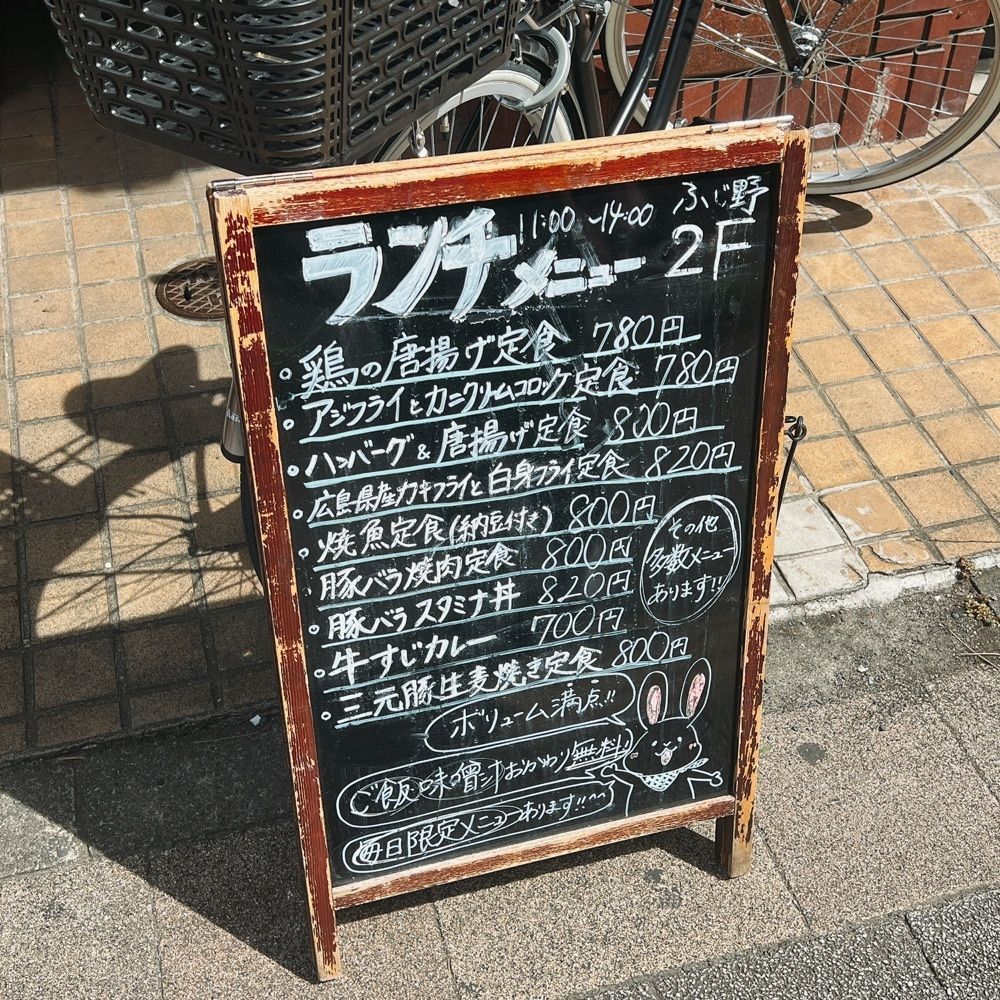 ランチメニュー 11:00～14:00 ふじ野 2F
鶏の唐揚げ定食 780円
アジフライとカニクリームコロッケ定食 780円
ハンバーグ&唐揚げ定食 800円
広島県産カキフライと白身フライ定食 820円
焼魚定食(納豆付き) 800円
豚バラ焼肉定食 800円
豚バラスタミナ丼 820円
牛すじカレー 700円
三元豚生姜焼き定食 800円
その他
多数メニュー
あります!!
ボリューム満点!!
ご飯・味噌汁おかわり無料!
毎日限定メニューあります!!